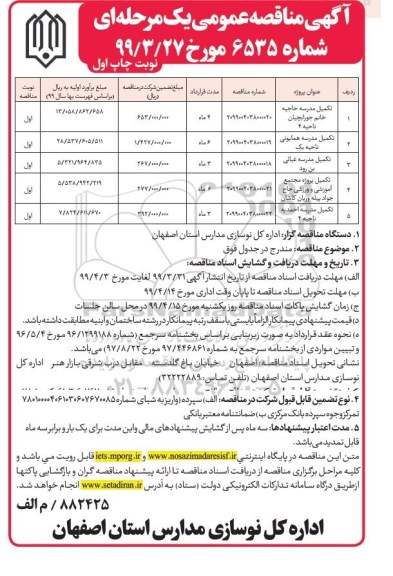 آگهی مناقصه عمومی یک مرحله‌ای
شماره ۶۵۳۵ مورخ ۹۹/۳/۲۷
نوبت چاپ اول
ردیف عنوان پروژه شماره مناقصه مدت قرارداد مبلغ تضمین شرکت در مناقصه (ریال) مبلغ برآورد اولیه به ریال (براساس فهرست بها سال ۹۹) نوبت مناقصه
۱ تکمیل مدرسه حاجیه خانم جورابچیان ناحیه ۴ ۲۰۹۹۰۰۴۰۳۸۰۰۰۰۲۰ ۴ ماه ۶۵۳/۰۰۰/۰۰۰ ۱۳/۰۵۸/۸۶۲/۶۵۸ اول
۲ تکمیل مدرسه همایونی ناحیه یک ۲۰۹۹۰۰۴۰۳۸۰۰۰۰۱۹ ۶ ماه ۱/۴۲۷/۰۰۰/۰۰۰ ۲۸/۵۳۷/۶۰۵/۵۱۱ اول
۳ تکمیل مدرسه غیاثی بن رود ۲۰۹۹۰۰۴۰۳۸۰۰۰۰۱۸ ۳ ماه ۲۶۷/۰۰۰/۰۰۰ ۵/۳۲۱/۹۶۴/۸۳۵ اول
۴ تکمیل پروژه مجتمع آموزشی و ورزشی حاج جواد بیته وریان کاشان ۲۰۹۹۰۰۴۰۳۸۰۰۰۰۲۱ ۶ ماه ۲۷۷/۰۰۰/۰۰۰ ۵/۵۳۸/۹۴۲/۲۱۹ اول
۵ تکمیل مدرسه احمدیه ناحیه ۴ ۲۰۹۹۰۰۴۰۳۸۰۰۰۰۲۲ ۳ ماه ۳۹۲/۰۰۰/۰۰۰ ۷/۸۲۴/۶۱۱/۶۷۰ اول
۱. دستگاه مناقصه گزار: اداره کل نوسازی مدارس استان اصفهان
۲. موضوع مناقصه: مندرج در جدول فوق
۳. تاریخ و مهلت دریافت و گشایش اسناد مناقصه:
الف) مهلت دریافت اسناد مناقصه از تاریخ انتشار آگهی ۹۹/۳/۳۱ لغایت مورخ ۹۹/۴/۳
ب) مهلت تحویل اسناد مناقصه تا پایان وقت اداری مورخ ۹۹/۴/۱۴
ج) زمان گشایش پاکات اسناد مناقصه روز یکشنبه مورخ ۹۹/۴/۱۵ در محل سالن جلسات
د) قیمت پیشنهادی پیمانکار الزاما بایستی با سقف رتبه پیمانکار در رشته ساختمان و ابنیه مطابقت داشته باشد.
ه) نحوه عقد قرارداد به صورت زیربنایی براساس بخشنامه سرجمع (شماره ۹۶/۱۲۹۹۱۸۸ مورخ ۹۶/۵/۴ و تبیین مواردی از بخشنامه سرجمع به شماره ۹۷/۴۴۶۸۶۱ مورخ ۹۷/۸/۲۲) می‌باشد.
نشانی تحویل اسناد مناقصه: اصفهان خیابان باغ گلدسته مقابل درب شرقی بازار هنر اداره کل نوسازی مدارس استان اصفهان (تلفن تماس: ۳۲۲۲۲۸۸۹)
۴. نوع تضمین قابل قبول شرکت در مناقصه: الف) سپرده (واریز به شبای شماره تمرکز وجوه سپرده بانک مرکزی ب) ضمانتنامه معتبر بانکی
۵. مدت اعتبار پیشنهادها: سه ماه پس از گشایش پیشنهادهای مالی و این مدت برای یک بار و برابر سه ماه قابل تمدید می‌باشد.
متن این مناقصه در پایگاه اینترنتی www.nosazimadaresisf.ir و iets.mporg.ir قابل رویت می باشد و کلیه مراحل برگزاری مناقصه از دریافت اسناد مناقصه تا ارائه پیشنهاد مناقصه گران و بازگشایی پاکتها از طریق درگاه سامانه تدارکات الکترونیکی دولت (ستاد) به آدرس www.setadiran.ir انجام خواهد شد.
۸۸۲۴۲۵ / م الف
اداره کل نوسازی مدارس استان اصفهان